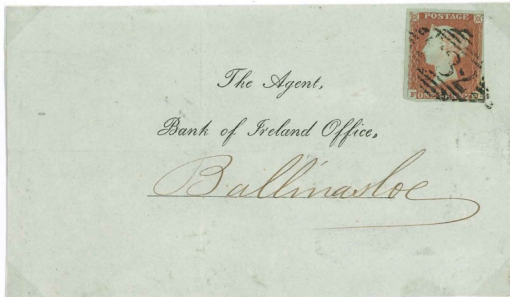 POSTAGE
The Agent,
Bank of Ireland Office,
Ballinasloe